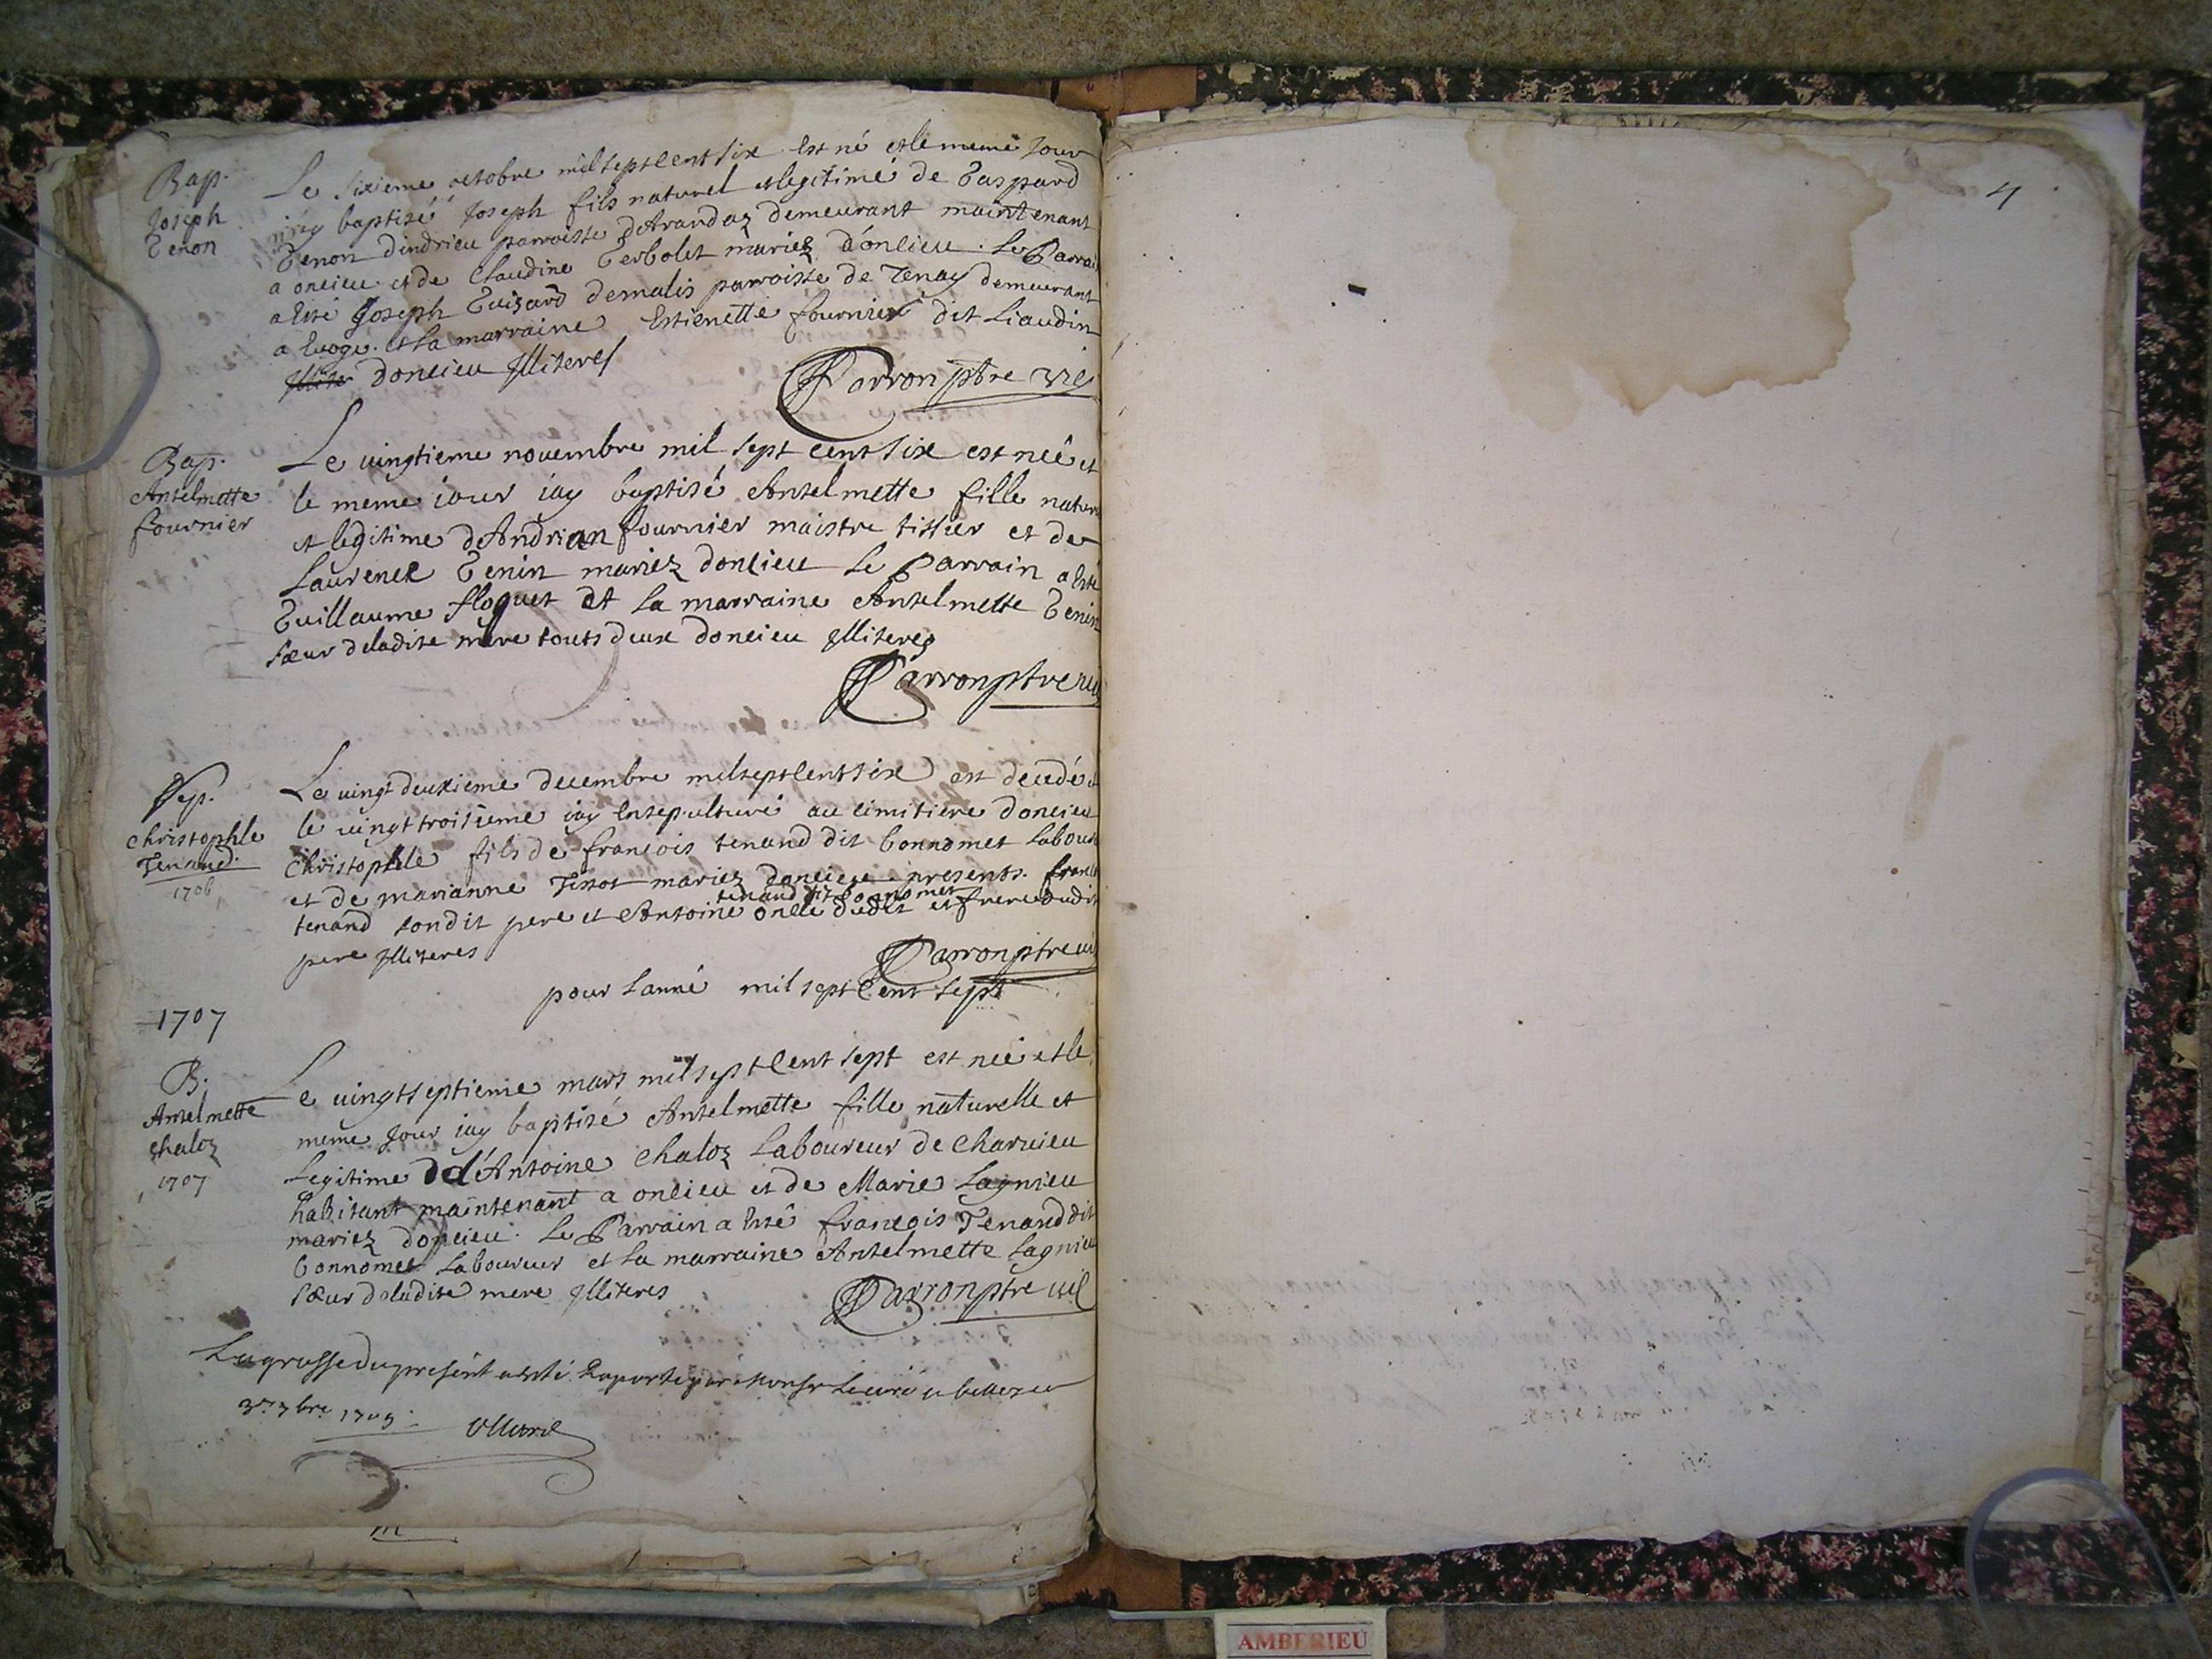 Bap.
Joseph
Genon
Le sixieme octobre mil sept cent six est né et le meme Jour
iay baptisé Joseph fils naturel et legitime de Gaspard
Genon dindrieu parroisse dArandaz demeurant maintenant
a oncieu et de Claudine Gerbolet mariez d'oncieu. Le Parrai
a Esté Joseph Guizard demalis parroisse de Tenay demeurant
a Evoge. et La marraine Estienette fournier dit Liaudin
Illite doncieu Illiteres
Parron ptre vic
Bap.
Antelmette
fournier
Le vingtieme novembre mil sept cent six est neé et
le meme iour iay baptisé Antelmette fille natur
et legitime dAndrian fournier maistre tissier et de
Laurence Genin mariez doncieu Le Parrain a Esté
Guillaume floquet et La marraine Antelmette Genin
sœur deladite mere touts deux doncieu Illiteres
Parron ptre vic
Sep.
christophle
Tenand.
1706
Le vingt deuxieme decembre mil sept cent six est decedé et
le vingt troisieme iay Ensepulturé au cimitiere doncieu
Christophle fils de françois tenand dit bonnomet Labour
et de marianne Tissot mariez doncieu presents. franco
tenand dit bonnomet
tenand sondit pere et Antoine oncle dudit et frere dudit
pere Illiteres
Parron ptre vic
pour Lanné mil sept Cent sept
1707
B.
Antelmette
chaloz
1707
Le vingtseptieme mars mil sept Cent sept est neé et le
meme Jour iay baptisé Antelmette fille naturelle et
Legitime dd'Antoine Chaloz Laboureur de Charvieu
habitant maintenant a oncieu et de Marie Lagnieu
mariez doncieu. Le Parrain a Esté françois Tenand dit
bonnomet Laboureur et La marraine Antelmette Lagnieu
sœur deladite mere Illiteres
Parron ptre vic
La grosse du present a esté Raporté par Monsr Le curé
3e 7bre 1709
m
4
AMBERIEU